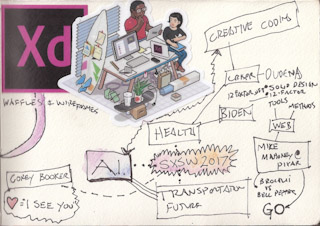 Xd
WAFFLES & WIREFRAMES
CREATIVE CODING
HEALTH
BIDEN
SOLID DESIGN
12-FACTOR
TOOLS
METHODS
WEB
A.I.
SXSW 2017
MIKE
MAHONEY @
PIXAR
COREY BOOKER
I SEE YOU
TRANSPORTATION
FUTURE
BROCCOLI
VS
BELL PEPPER
GO